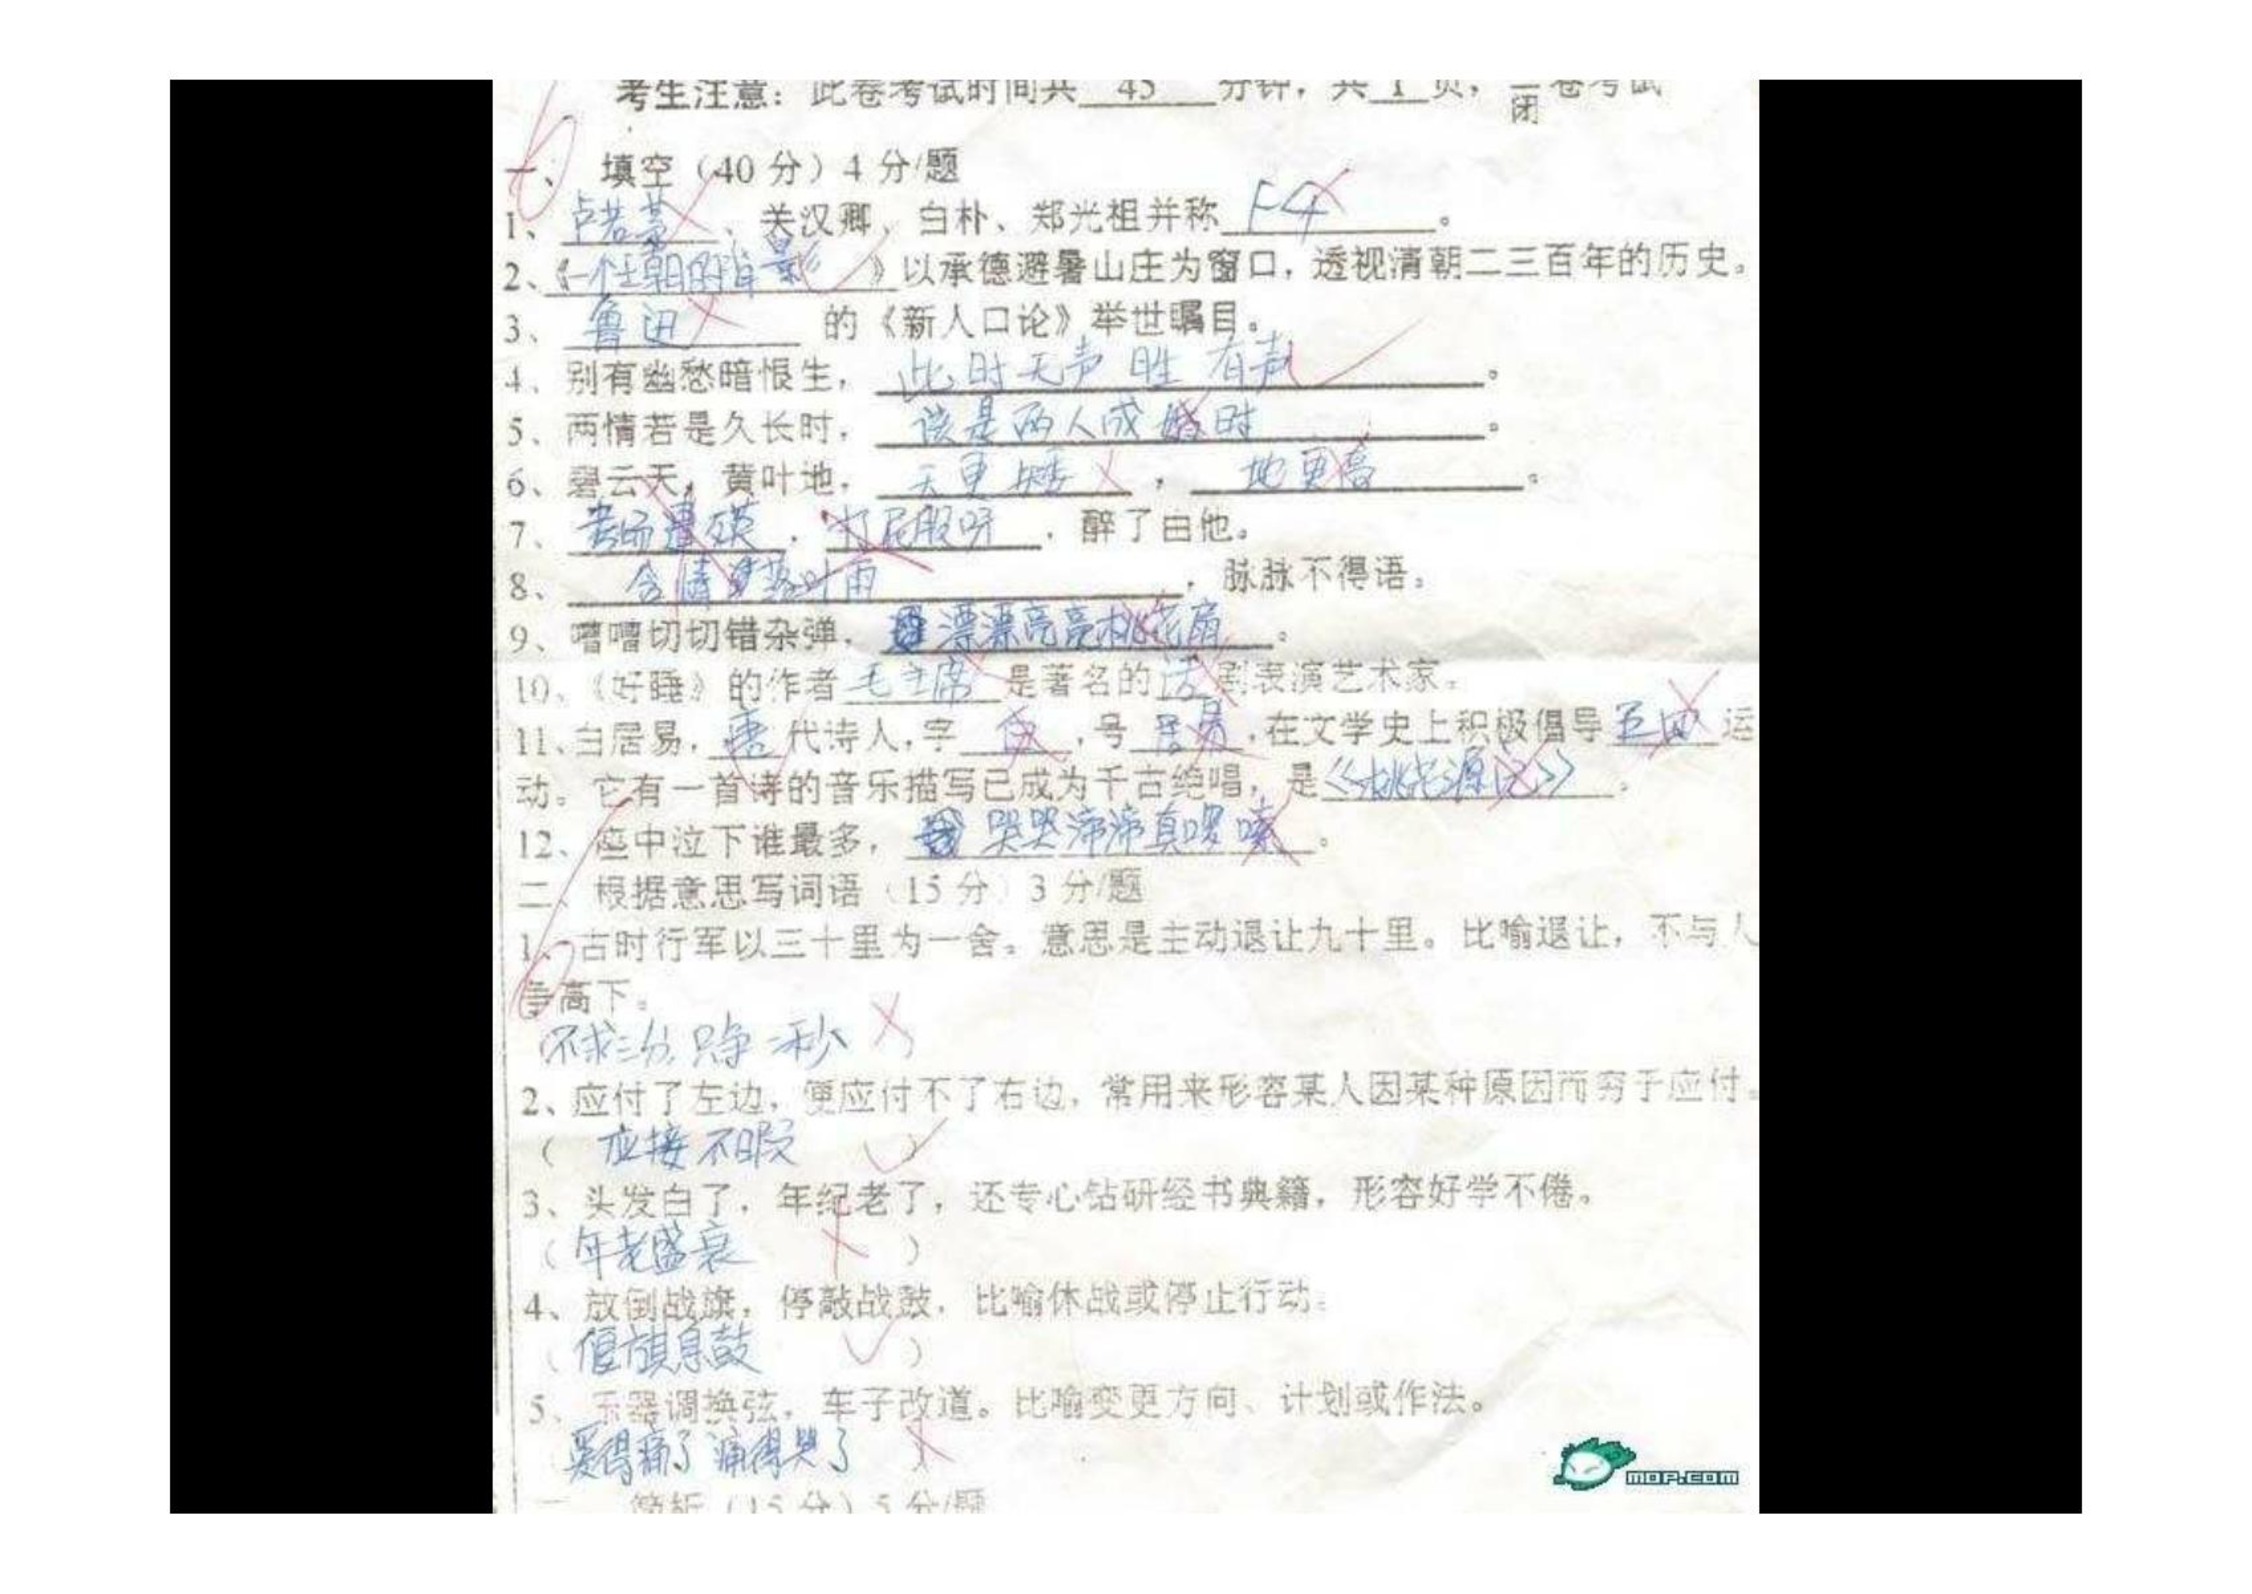 考生注意：此卷考试时间共 45 分钟，共 1 页，闭卷考试
一、填空（40分）4分/题
1、卢若萱、关汉卿、白朴、郑光祖并称 F4 。
2、《一个王朝的背影》以承德避暑山庄为窗口，透视清朝二三百年的历史。
3、鲁迅 的《新人口论》举世瞩目。
4、别有幽愁暗恨生，此时无声胜有声。
5、两情若是久长时，该是两人成婚时。
6、碧云天，黄叶地，天更矮，地更高。
7、考场遭殃，打屁股呀，醉了由他。
8、含情 落叶雨，脉脉不得语。
9、嘈嘈切切错杂弹，漂漂亮亮桃花扇。
10、《好睡》的作者毛主席是著名的活剧表演艺术家。
11、白居易，唐代诗人，字 白，号 居易，在文学史上积极倡导五四运
动。它有一首诗的音乐描写已成为千古绝唱，是《桃花源记》。
12、座中泣下谁最多，哭哭啼啼真啰嗦。
二、根据意思写词语（15分）3分/题
1、古时行军以三十里为一舍。意思是主动退让九十里。比喻退让，不与人
争高下。
（不求三分，只争一秒
2、应付了左边，便应付不了右边，常用来形容某人因某种原因而穷于应付。
（应接不暇）
3、头发白了，年纪老了，还专心钻研经书典籍，形容好学不倦。
（年老盛衰）
4、放倒战旗，停敲战鼓，比喻休战或停止行动。
（偃旗息鼓）
5、乐器调换弦，车子改道。比喻变更方向、计划或作法。
爱得痛了 痛得哭了）
简析（15分）5分/题
MOP.COM